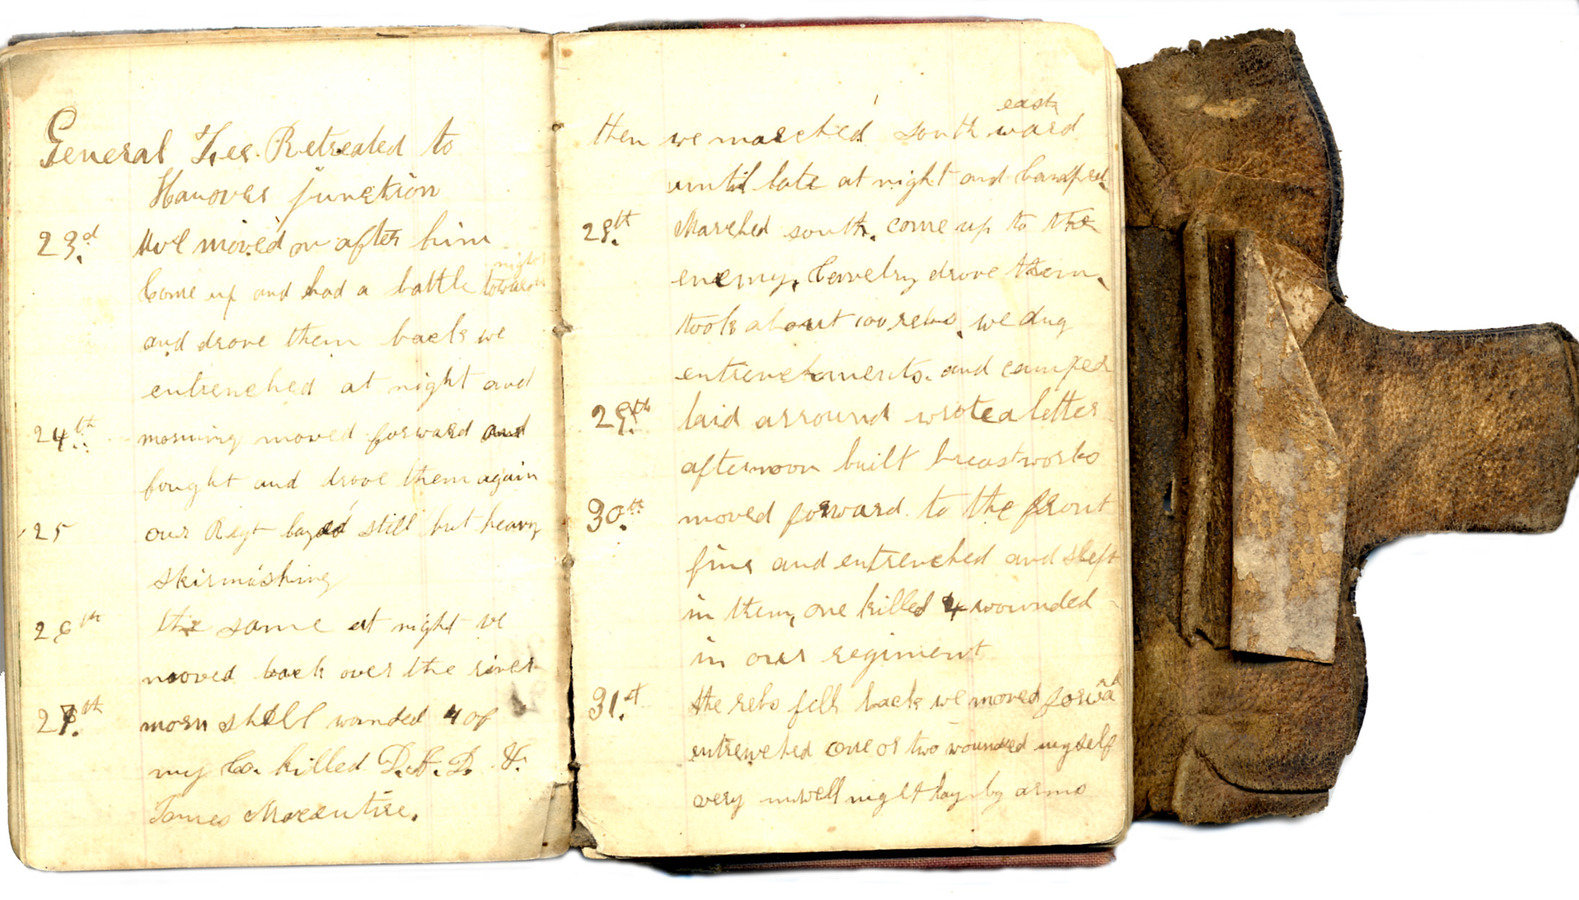 General Lee Retreated to
Hanover junction
23.d We moved on after him
Come up and had a battle towards night
and drove them back we
entrenched at night and
24th morning moved forward and
fought and drove them again
25 our Regt layed still but heavy
skirmishing
26th the same at night we
mooved back over the river
27.th morn shell wanded 4 of
my Co. killed &
James
then we marched south east ward
until late at night and Camped
28.th Marched south. come up to the
enemy, Cavelry drove them,
took about 100 rebs, we dug
entrenchments. and camped
29.th laid arround wrote a letter
afternoon built breastworks
30.th moved forward to the front
line and entrenched and slept
in them, one killed 4 wounded
in our regiment
31.st the rebs fell back we moved forwad
entrenched one or two wounded myself
very unwell night lay by arms